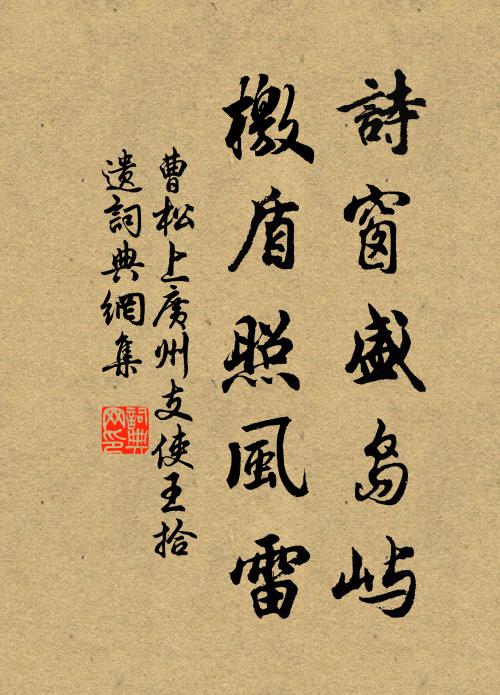 詩窗盛島嶼
檄盾照風雷
曹松上廣州支使王拾
遺詞典網集
詞典网印